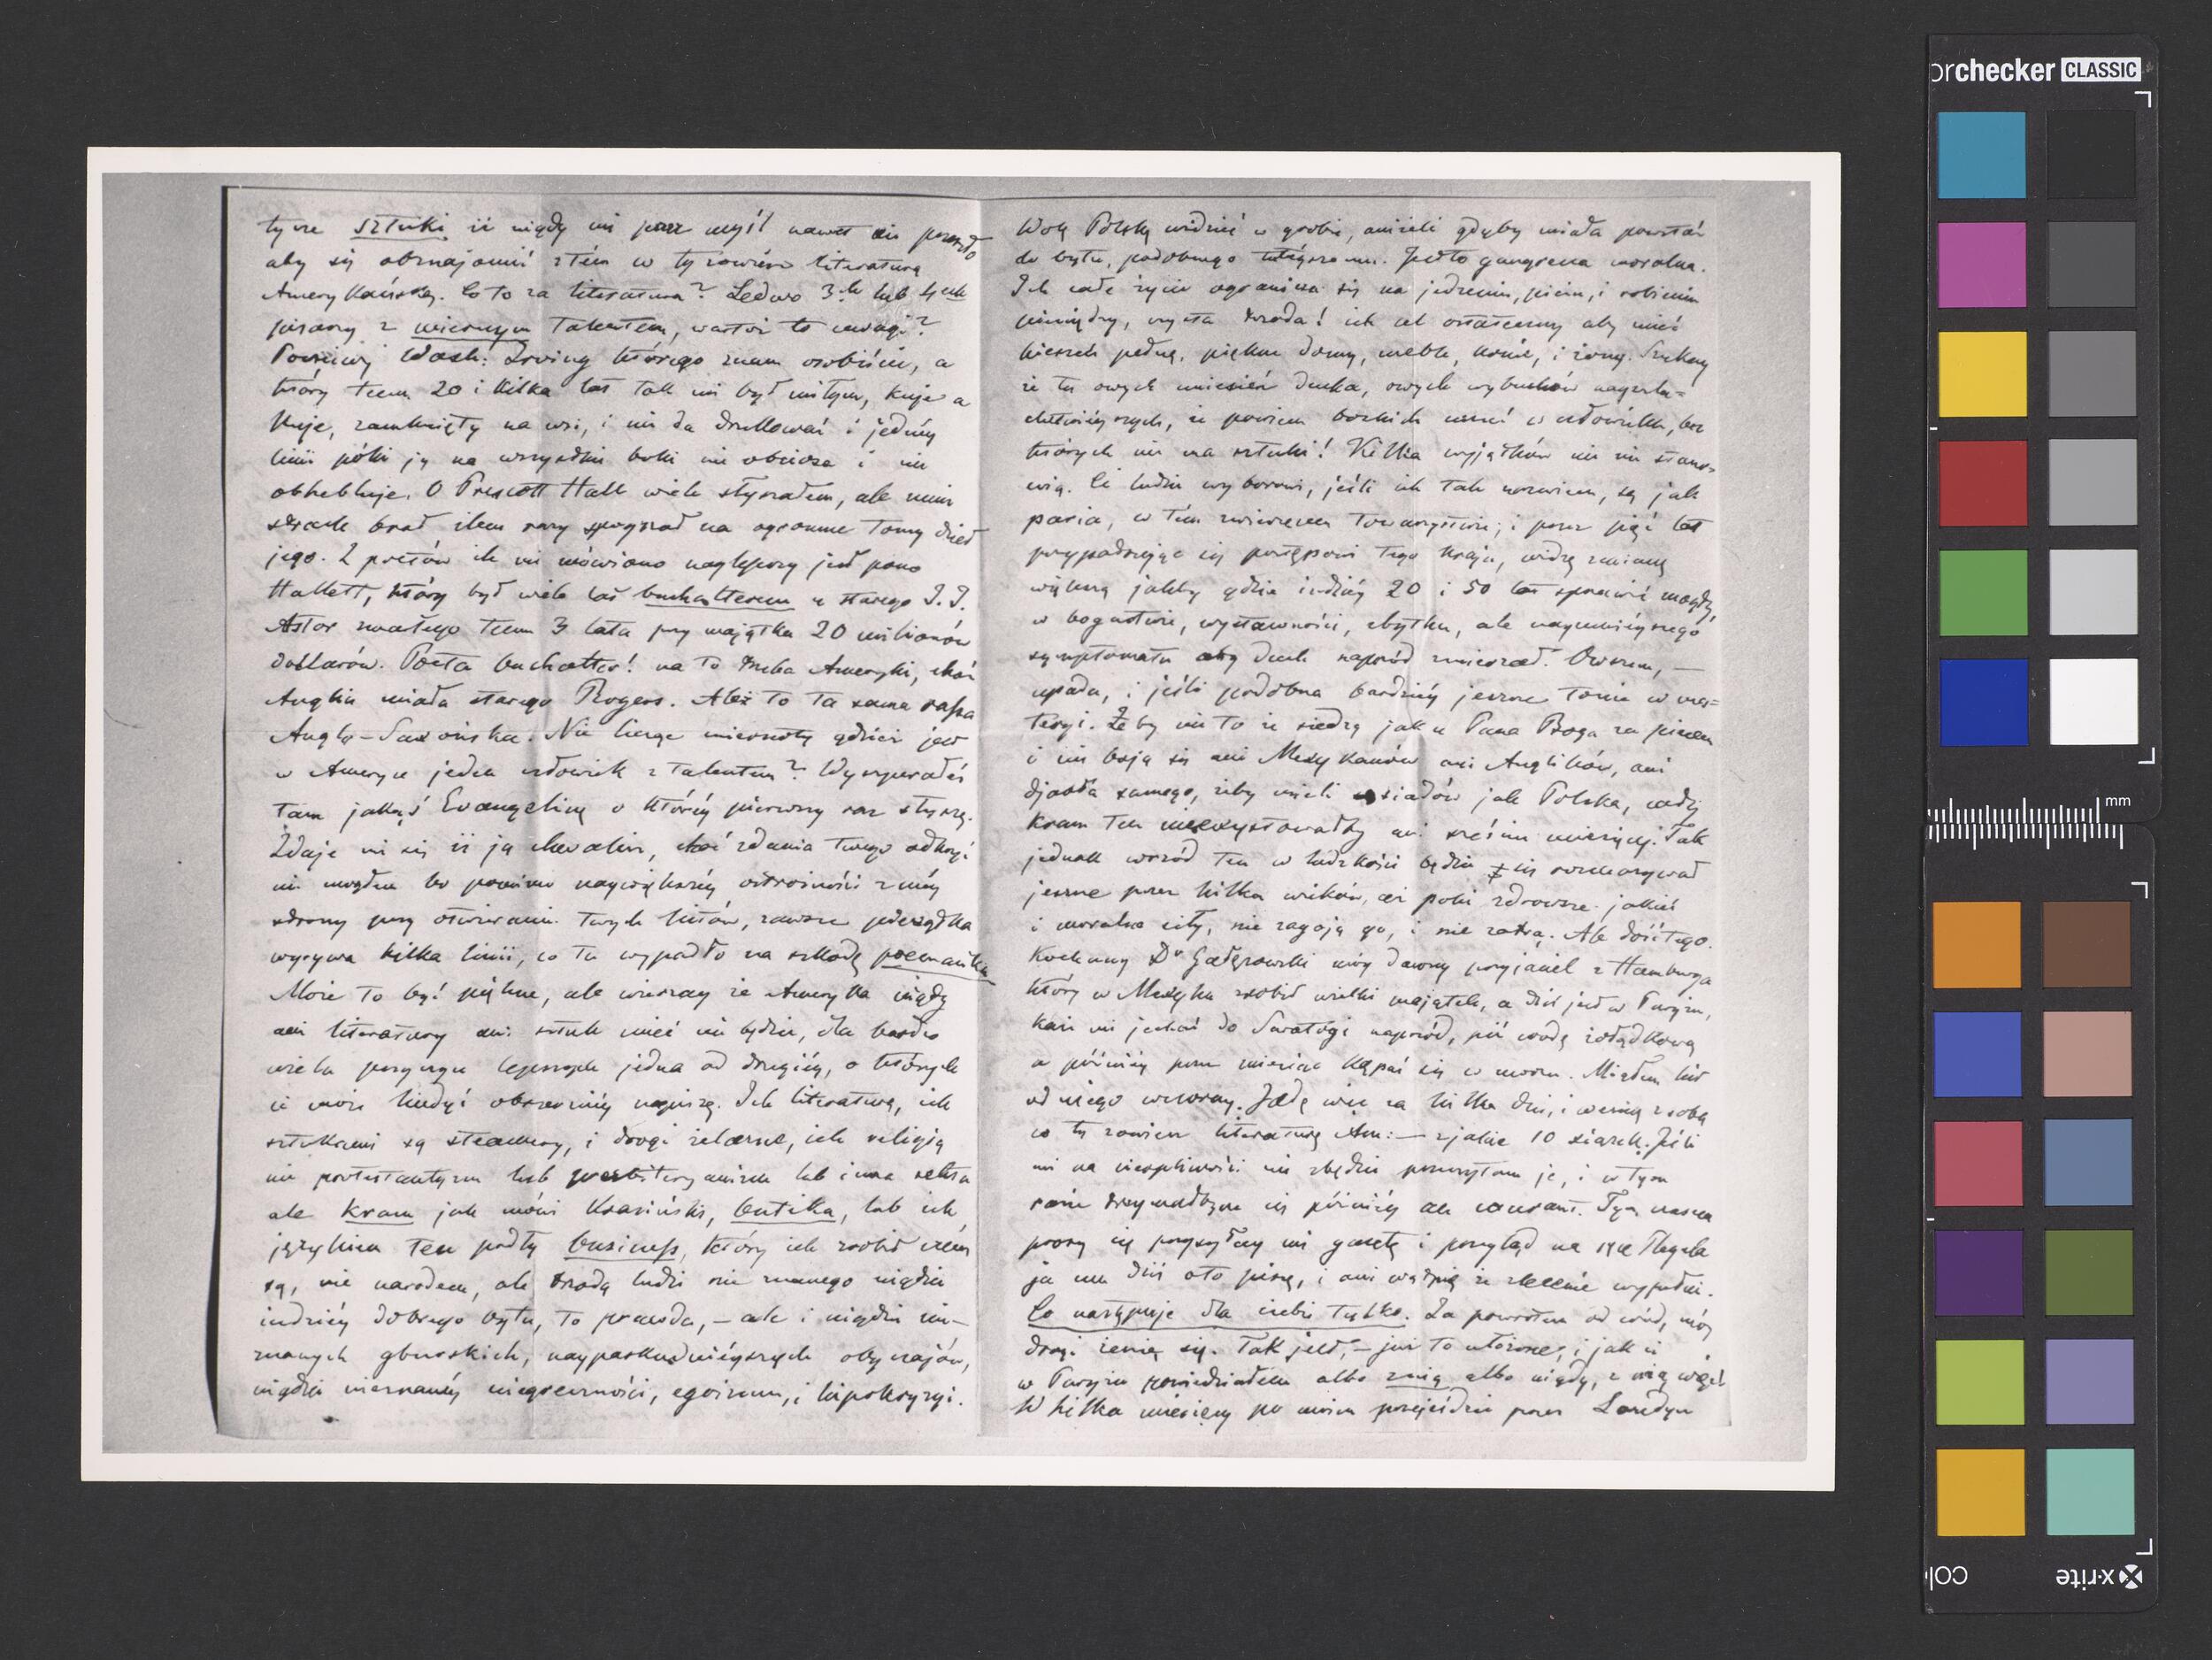 tyrze sztuki iż nigdy mi przez myśl nawet nie przeszło
aby się obznajomić z tém co ty zowiesz literaturą
Amerykańską. Co to za literatura? Ledwo 3ch lub 4ech
pisarzy z miernym talentem, wartoż to uwagi?
Poczciwy Wash: Irving którego znam osobiście, a
który temu 20 i kilka lat tak mi był miłym, kuje a
kuje, zamknięty na wsi, i nie da drukować i jednéj
linii póki ją na wszystkie boki nie obciosa i nie
obhebluje. O Prescott Hall wiele słyszałem, ale mnie
strach brał ilem razy spojrzał na ogromne tomy dzieł
jego. Z poetów ile mi mówiono najlepszy jest pono
Hallett, który był wiele lat buchalterem u starego J. J.
Astor zmarłego temu 3 lata przy majątku 20 milionów
dollarów. Poeta buchalter! na to trzeba Ameryki, choć
Anglia miała starego Rogers. Ależ to ta sama rassa
Anglo-Saxońska. Nie licząc miernoty gdzież jest
w Ameryce jeden człowiek z talentem? Wyszperałeś
tam jakąś Evangelinę o któréj pierwszy raz słyszę.
Zdaje mi się iż ją chwalisz, choć zdania twego odkryć
nie mogłem bo pomimo największéj ostrożności z méj
strony przy otwieraniu twych listów, zawsze pieczątka
wyrywa kilka linii, co tu wypadło na szkodę poemaciku
Może to być piękne, ale wierzaj że Ameryka nigdy
ani literatury ani sztuk mieć nie będzie, dla bardzo
wielu przyczyn lepszych jedna od drugiéj, o których
ci może kiedyś obszerniéj napiszę. Ich literaturą, ich
sztukami są steamery, i drogi żelazne, ich religią
nie protestantyzm lub presbiteryanizm lub inna sekta
ale kram jak mówi Krasiński, butika, lub ich
językiem ten podły business, który ich zrobił czem
są, nie narodem, ale trzodą ludzi nie znanego nigdzie
indziéj dobrego bytu, to prawda, — ale i nigdzie nie-
znanych gburskich, naypaskudniéyszych obyczajów,
nigdzie nieznanéj niegrzeczności, egoizmu, i hipokryzyi.
Wolę Polskę widzieć w grobie, aniżeli gdyby miała powstać
do bytu, podobnego tutéyszemu. Jestto gangrena moralna.
Ich całe życie ogranicza się na jedzeniu, piciu, i robieniu
pieniędzy, czysta trzoda! ich cel ostateczny aby mieć
kieszeń pełną, piękne domy, meble, konie, i żony. Szukaj
że tu owych uniesień ducha, owych wybuchów nayszla-
chetniéyszych, że powiem bozkich uczuć w człowieku, bez
których nie ma sztuki! Kilka wyjątków nic nie stano-
wią. Ci ludzie wyborowi, jeśli ich tak nazwiem, są jak
paria, w tém zwierzęcem towarzystwie; i przez pięć lat
przypatrując się postępowi tego kraju, widzę zmianę
większą jakby gdzie indziéj 20 i 50 lat sprawić mogły,
w bogactwie, wystawności, zbytku, ale naymniéyszego
symptomatu aby duch naprzód zmierzał. Owszem, —
upada, i jeśli podobna bardziéj jeszcze tonie w ma=
teryi. Żeby nie to że siedzą jak u Pana Boga za piecem
i nie boją się ani Mexykanów ani Anglików, ani
djabła samego, żeby mieli sąsiadów jak Polska, cały
kram ten nieexystowałby ani sześciu miesięcy. Tak
jednak wrzód ten w ludzkości będzie się rozszarzywał
jeszcze przez kilka wieków, aż póki zdrowsze jakieś
i moralne siły, nie zagoją go, i nie zatrą. Ale dość tego.
Kochany Dr Gałęzowski mój dawny przyjaciel z Hamburga
który w Mexyku zrobił wielki majątek, a dziś jest w Paryżu,
każe mi jechać do Saratogi naprzód, pić wodę żołądkową
a późniéj przez miesiąc kąpać się w morzu. Miałem list
od niego wczoraj. Jadę więc za kilka dni, i wezmę z sobą
co ty zowiesz literaturą Am: — z jakie 10 xiążek. Jeśli
mi na cierpliwości nie zbędzie przeczytam je, i w tym
razie pogadamy się późniéj au courant. Tym czasem
proszę cię przysyłaj mi gazetę i przegląd na ręce Flagela
ja mu dziś oto piszę, i ani wątpię że zlecenie wypełni.
Co następuje dla ciebie tylko. Za powrotem od wód, mój
drogi żenię się. Tak jest, — już to ułożone, i jak ci
w Paryżu powiedziałem albo z nią albo nigdy, z nią więc!
W kilka miesięcy po moim przejeździe przez Londyn